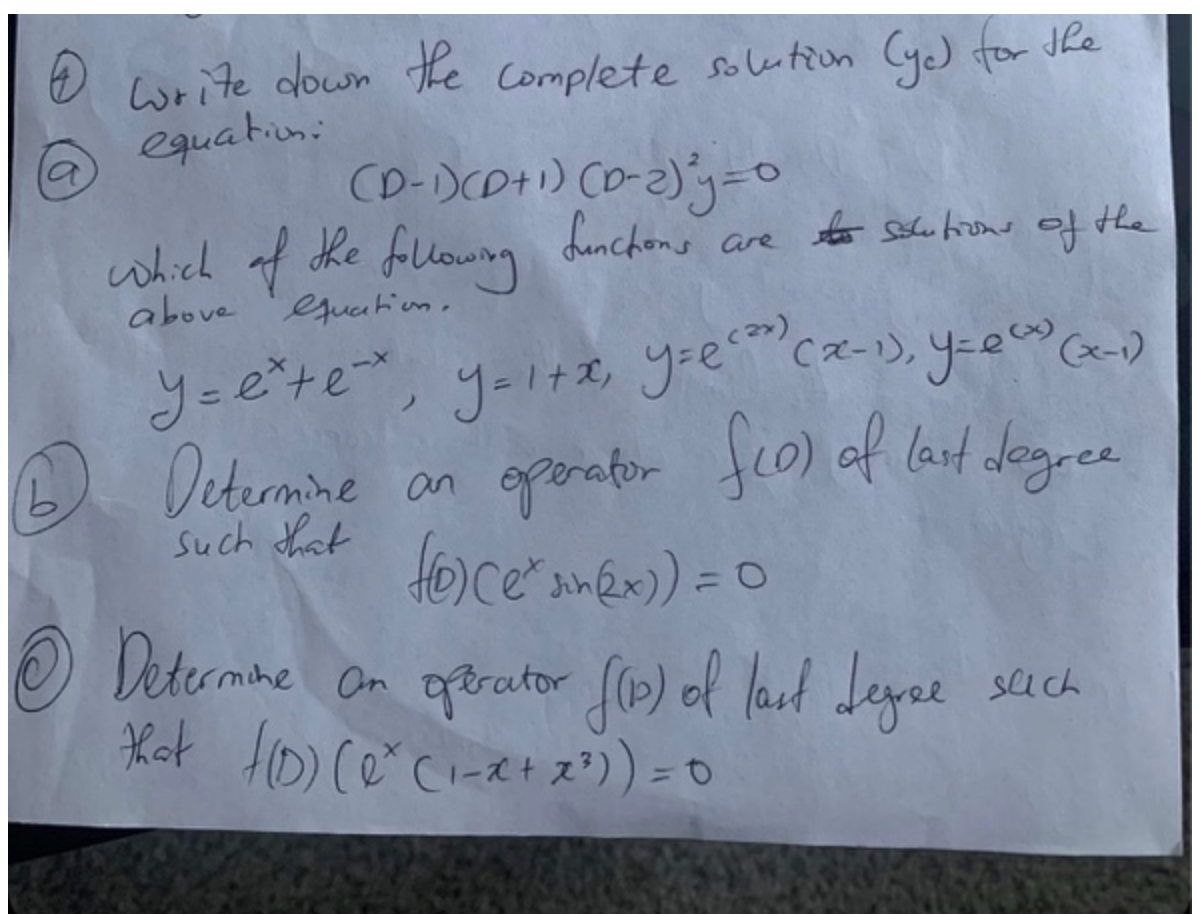 ① Write down the complete solution (yc) for the
equation:
ⓐ
(D-1)(D+1)(D-2)²y=0
which of the following functions are solutions of the
above equation.
y=eˣ+e⁻ˣ, y=1+x, y=e⁽²ˣ⁾(x-1), y=e⁽ˣ⁾(x-1)
ⓑ Determine an operator f(D) of last degree
such that
f(D)(eˣ sin(2x)) = 0
ⓒ Determine an operator f(D) of last degree such
that f(D)(eˣ(1-x+x³))=0